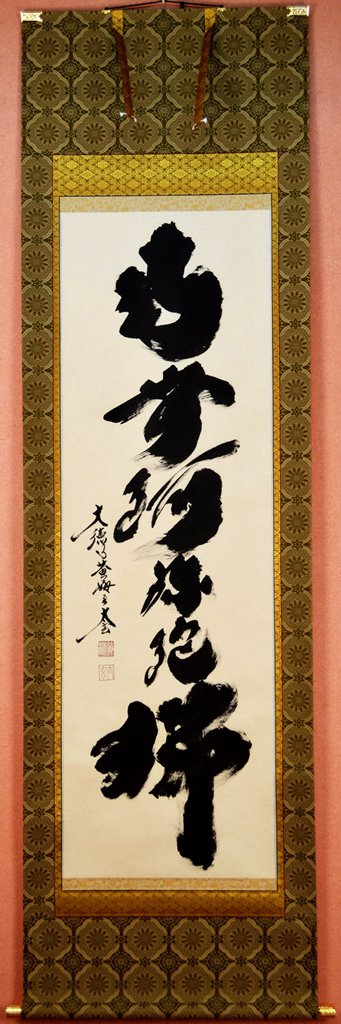 南無阿弥陀佛
大徳寺黄梅主太玄